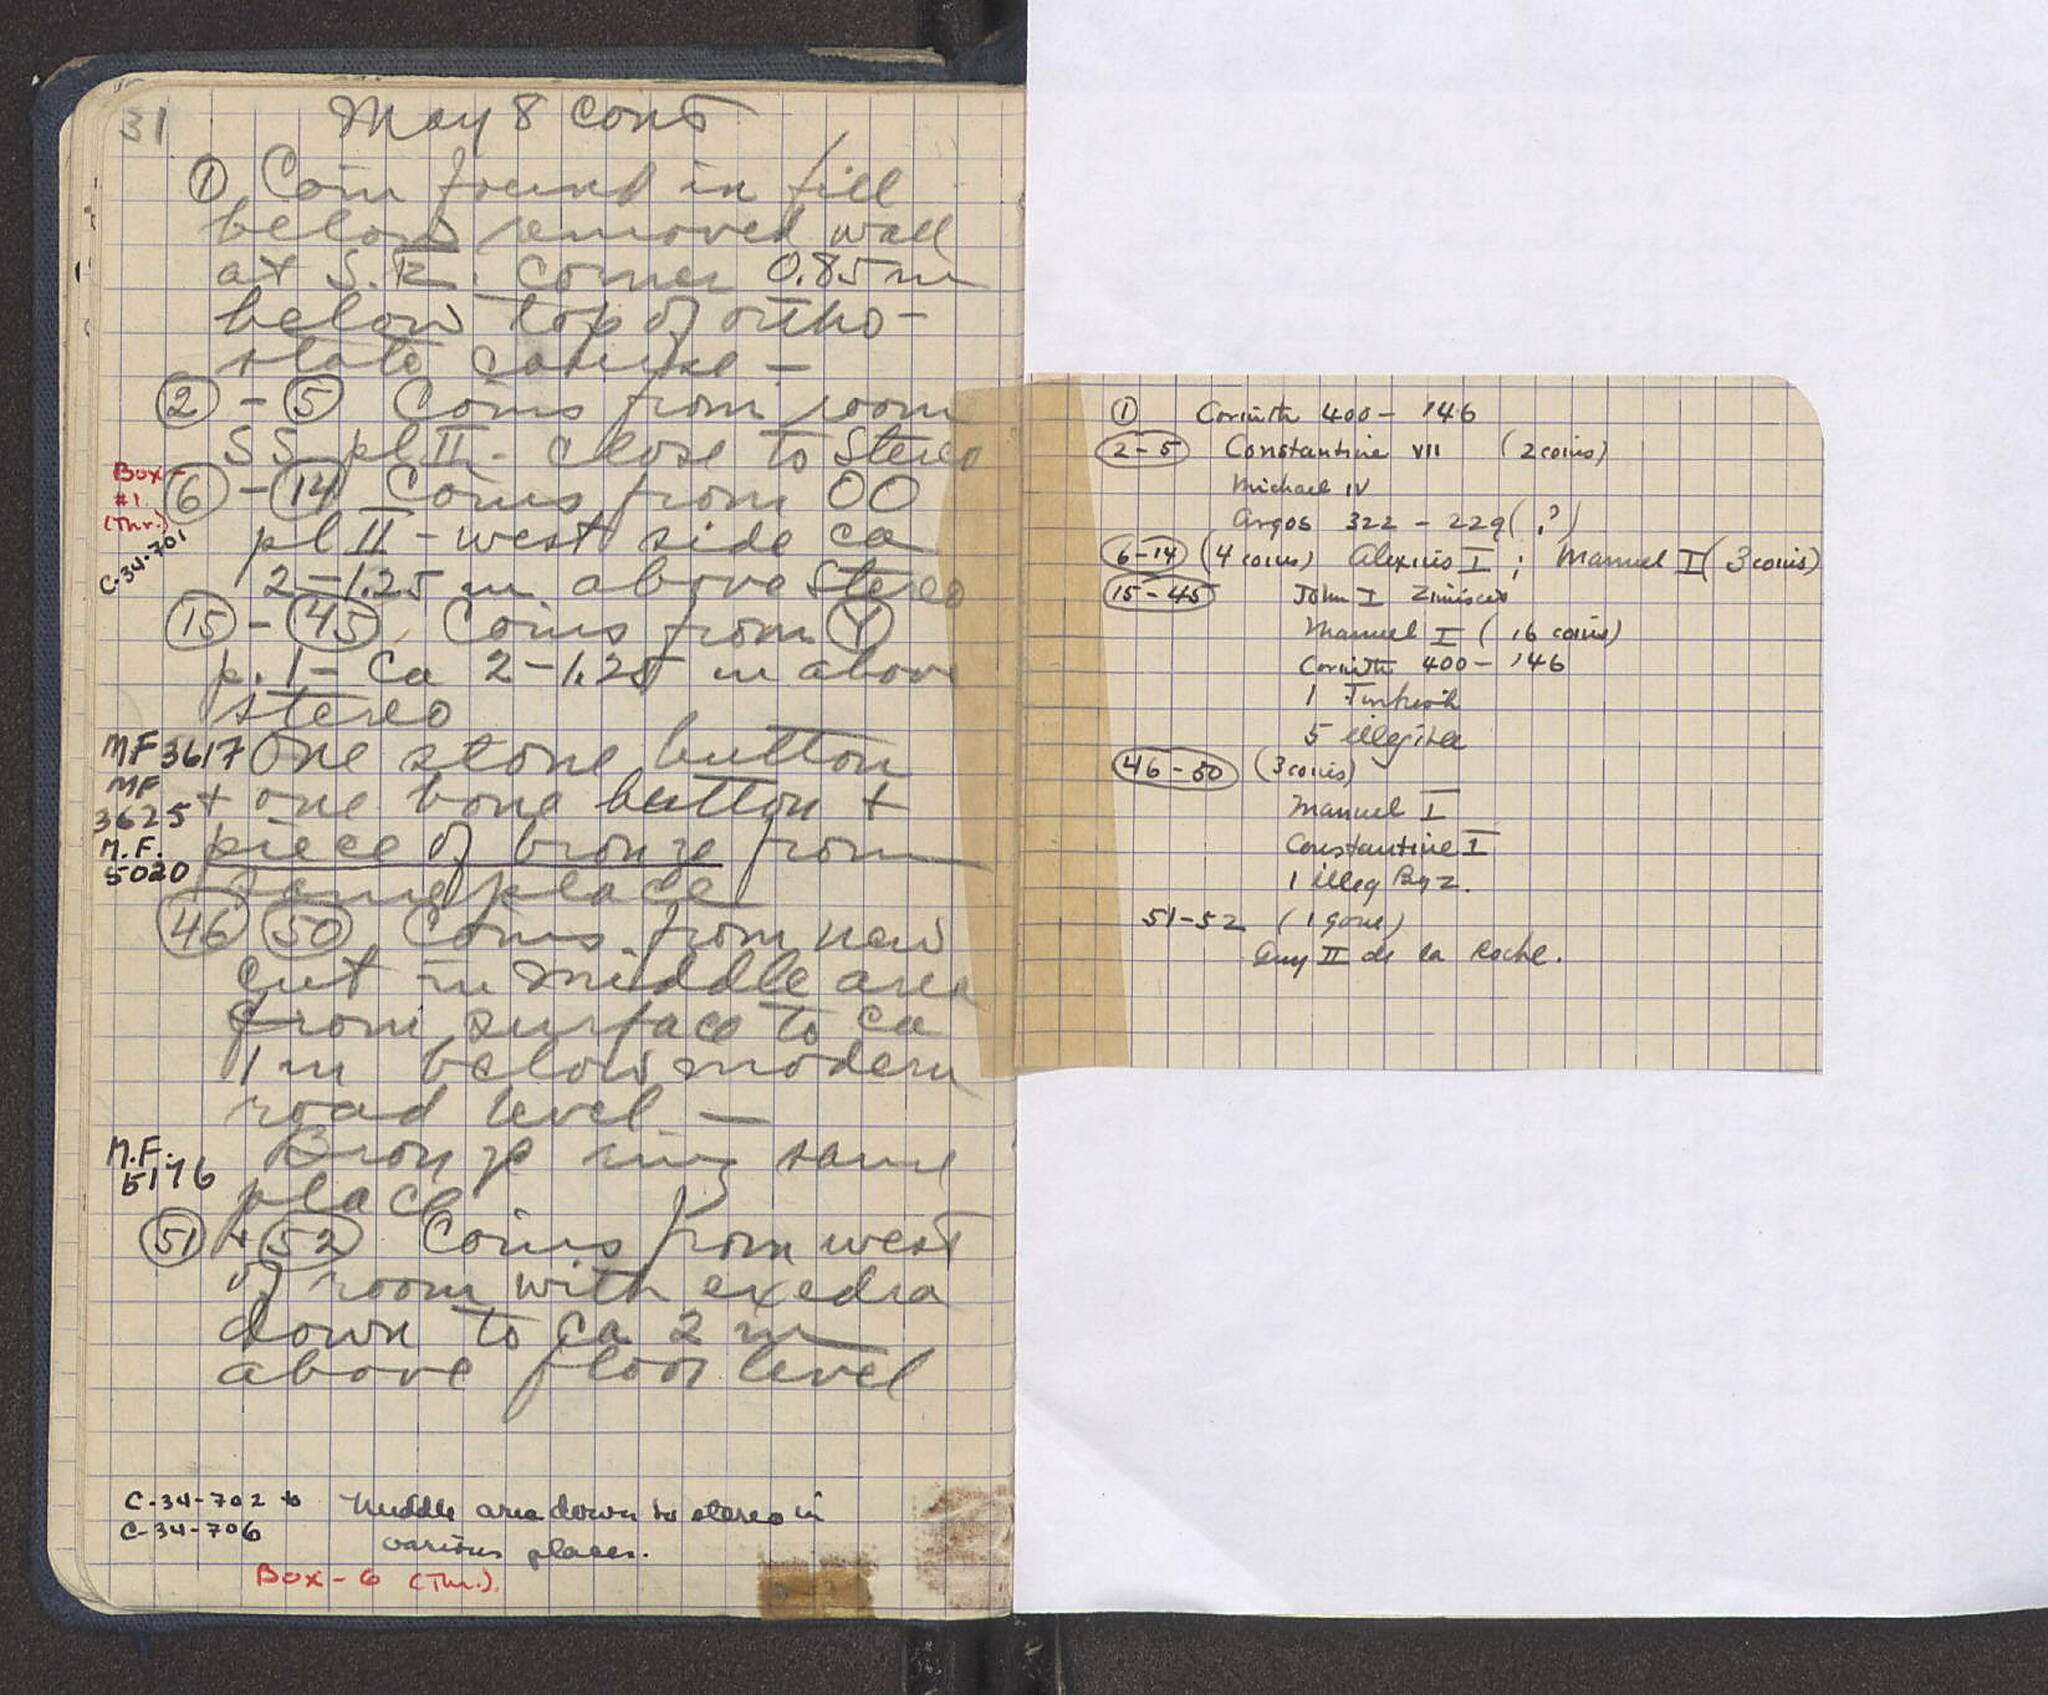 31
May 8 cont
① Coin found in fill
below removed wall
at S.E. corner 0.85 m
below top of ortho-
state course -
② - ⑤ Coins from room
SS pl II - close to Stereo
Box -
#1.
(Thr.)
C-34-701
⑥ - ⑭ Coins from OO
pl II - west side ca
2-1.25 m above Stereo
⑮ - ㊺ Coins from Ⓨ
p. 1 - Ca 2-1.25 m above
stereo
MF 3617 One stone button
MF
3625 + one bone button +
M.F.
5020 piece of bronze from
same place
㊻ ㊿ Coins from new
cut in middle area
from surface to ca
1 m below modern
road level -
M.F.
5176 Bronze ring same
place
(51) + (52) Coins from west
of room with exedra
down to ca 2 m
above floor level
C-34-702 to
C-34-706
Middle area down to stereo in
various places.
Box - 6 (Thr.).
① Corinth 400 - 146
(2-5) Constantine VII (2 coins)
Michael IV
Argos 322 - 229 (?)
(6-14) (4 coins) Alexius I ; Manuel I (3 coins)
(15-45) John I Zimisces
Manuel I (16 coins)
Corinth 400 - 146
1 Turkish
5 illegible
(46-50) (3 coins)
Manuel I
Constantine I
1 illeg Byz.
51-52 (1 gone)
Guy II de la Roche.